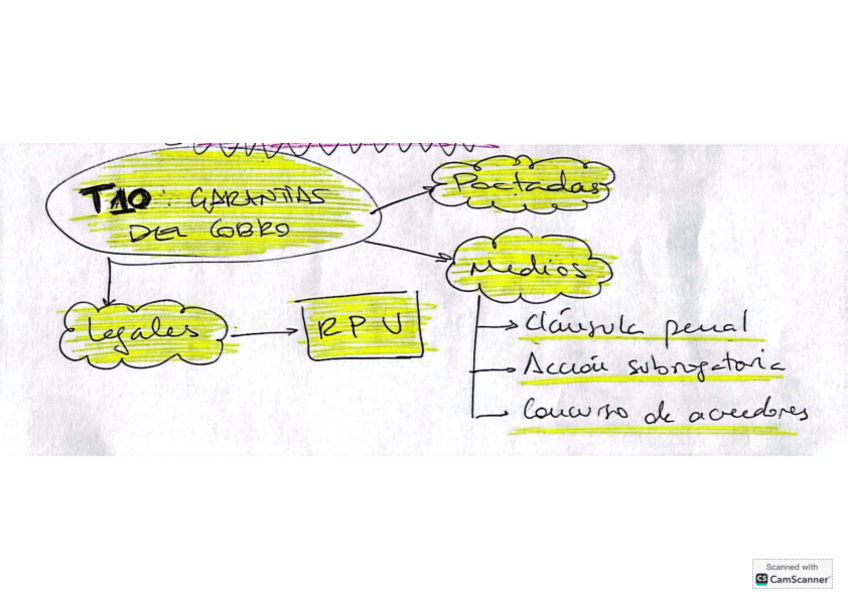 T10: GARANTÍAS
DEL COBRO
Pactadas
Medios
Cláusula penal
Acción subrogatoria
Concurso de acreedores
Legales
RPU
Scanned with
CS CamScanner